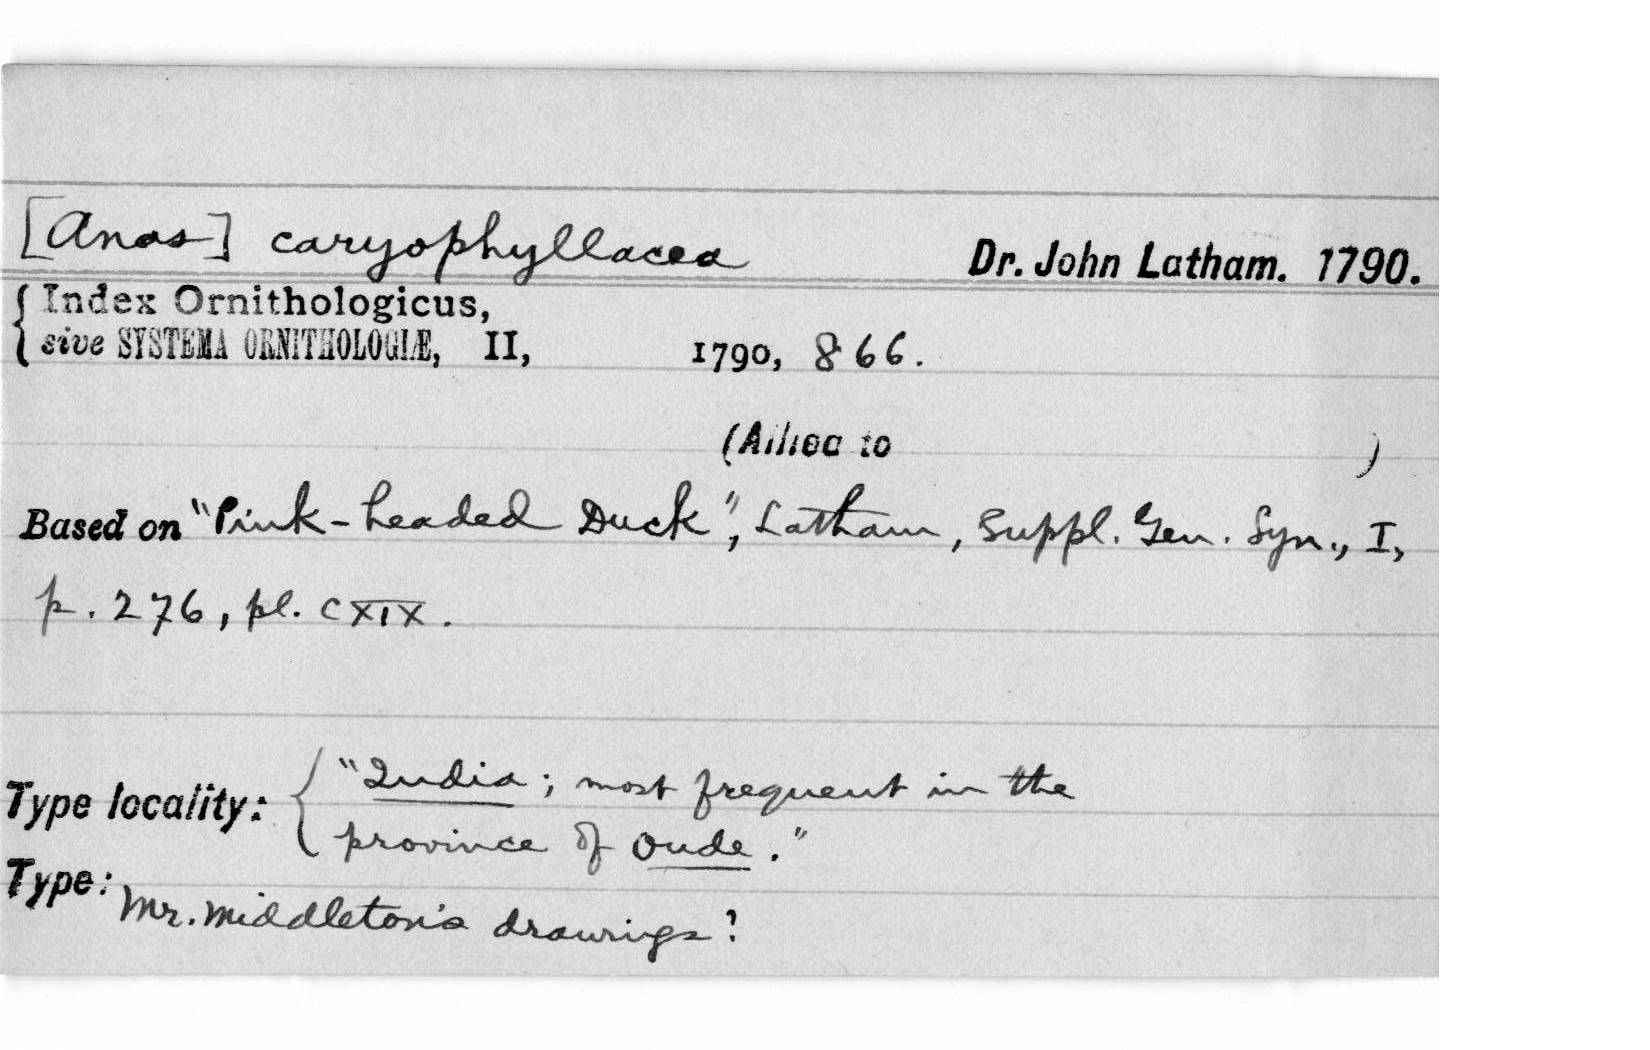 [Anas] caryophyllacea Dr. John Latham. 1790.
{ Index Ornithologicus,
sive SYSTEMA ORNITHOLOGIÆ, II, 1790, 866.
(Allied to )
Based on "Pink-headed Duck", Latham, Suppl. Gen. Syn., I,
p. 276, pl. CXIX.
Type locality: { "India; most frequent in the
province of Oude."
Type: Mr. Middleton's drawings?